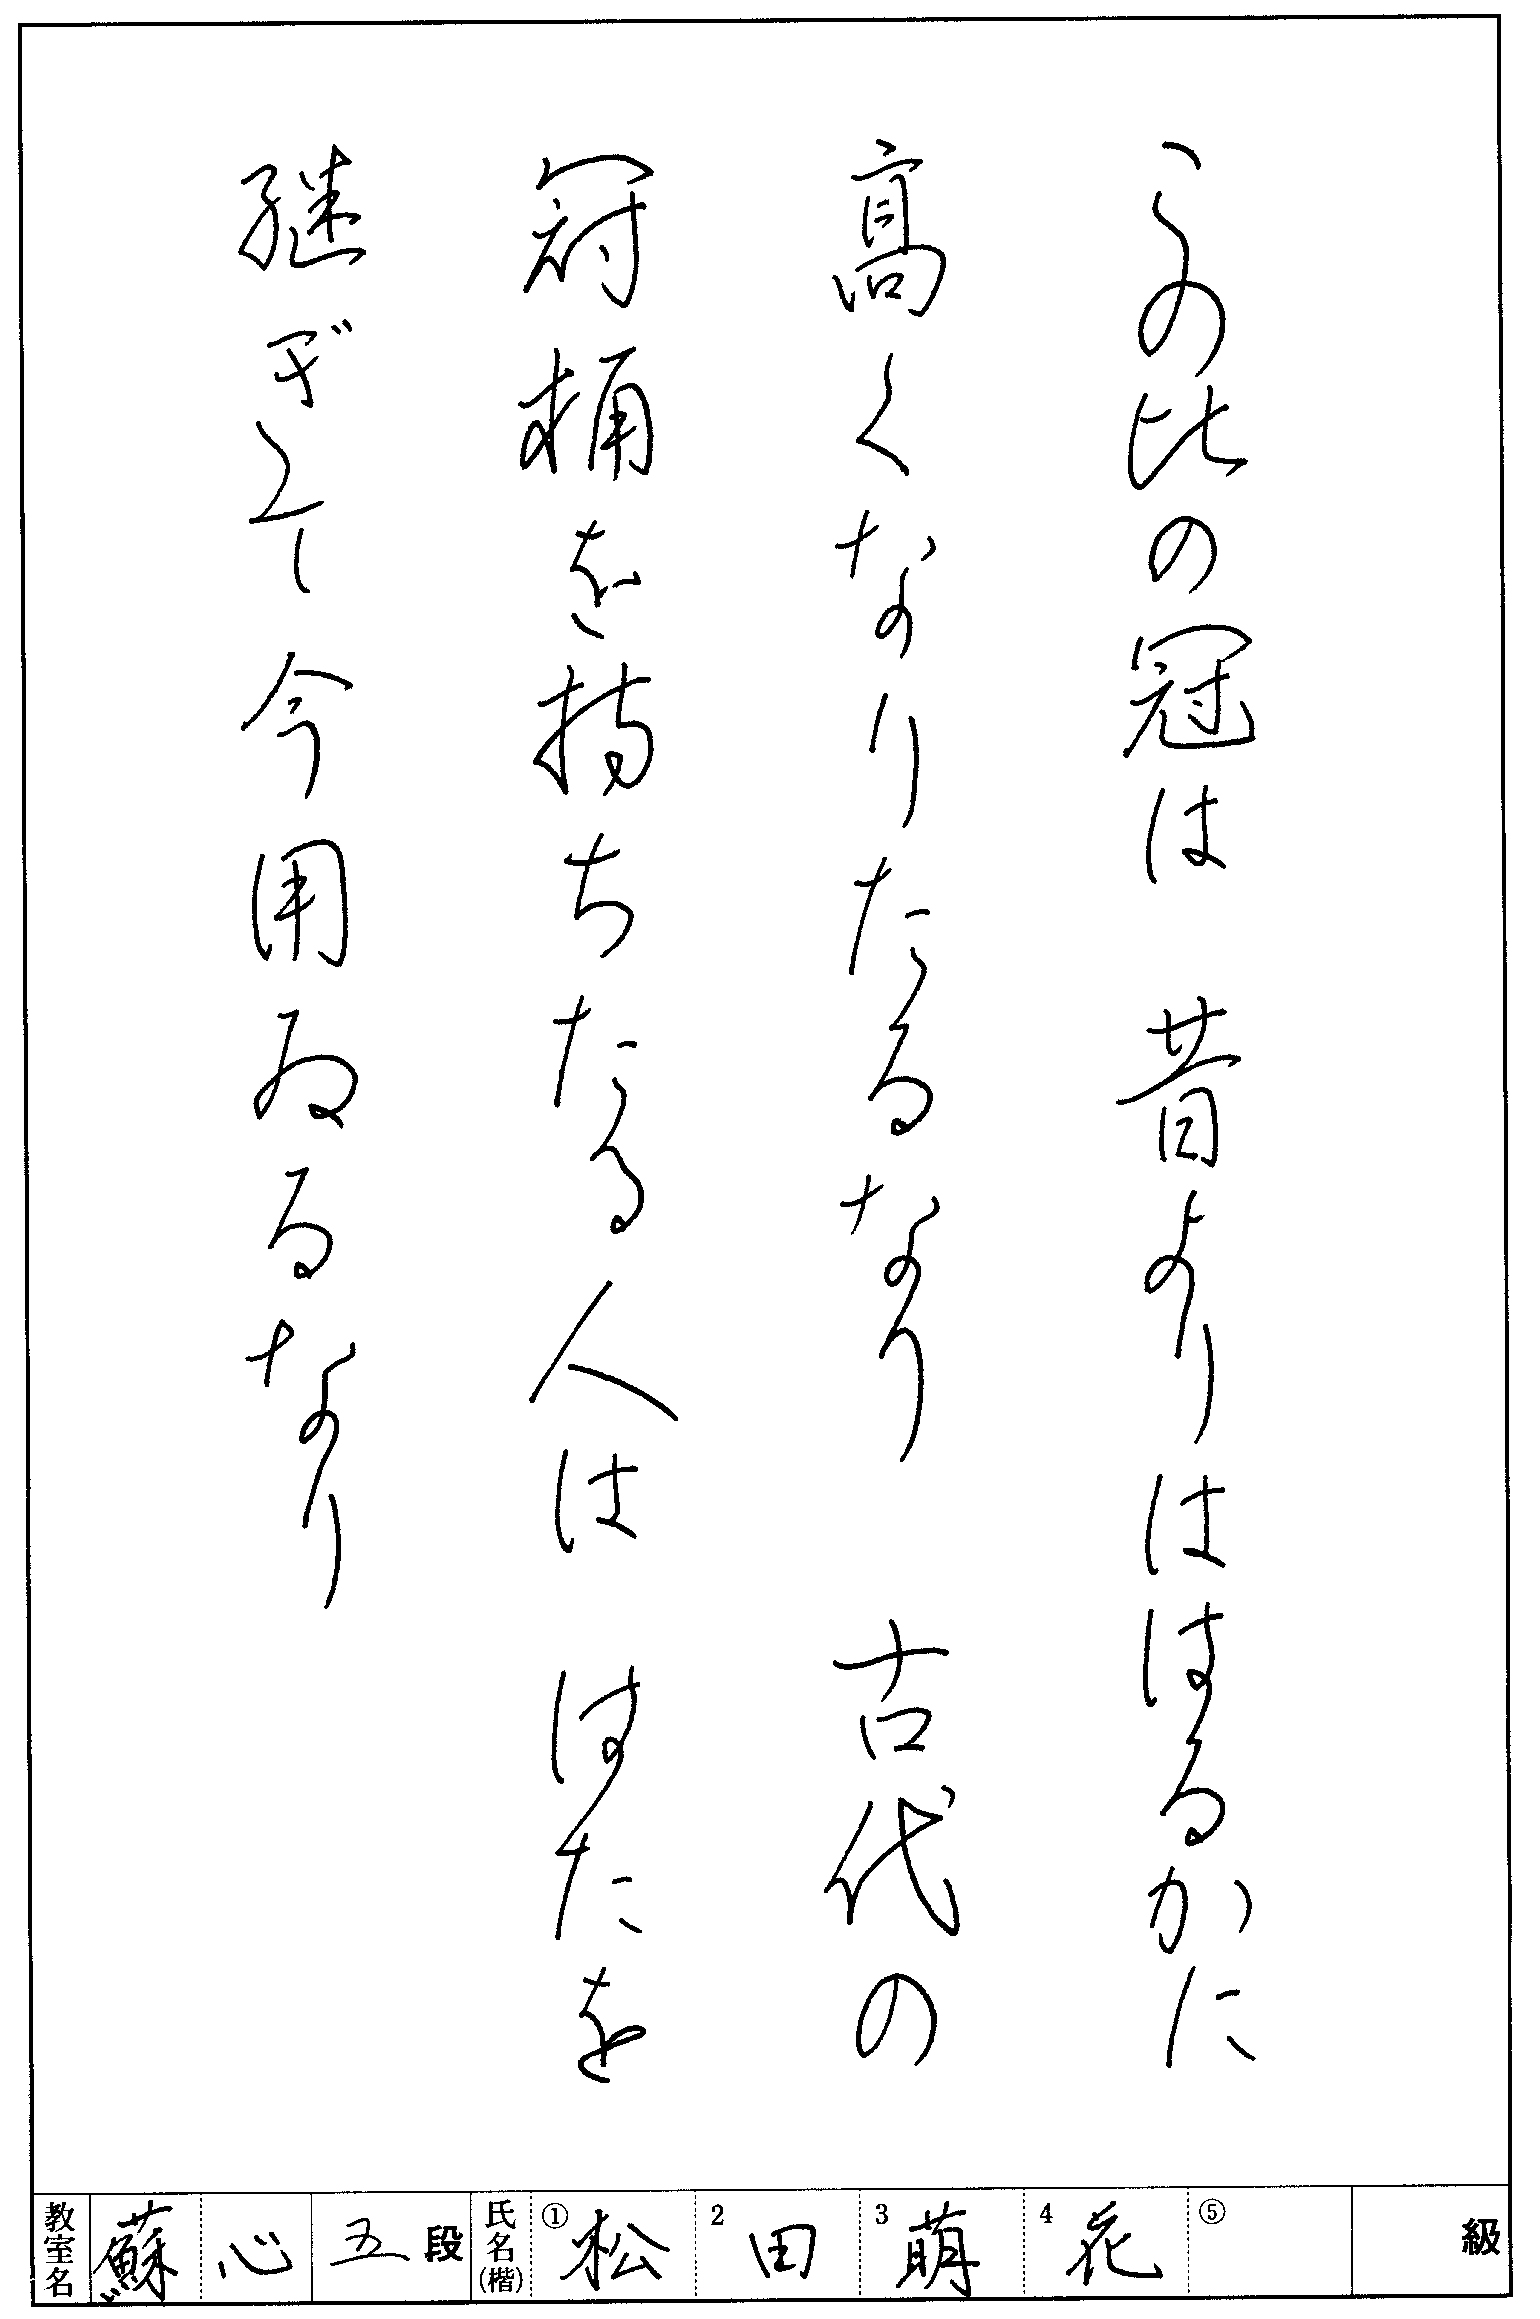 この比の冠は 昔よりははるかに
高くなりたるなり 古代の
冠桶を持ちたる人は はたを
継ぎて今用ゐるなり
教室名 蘇心 五段 氏名(楷) ① 松 2 田 3 萌 4 花 ⑤ 級